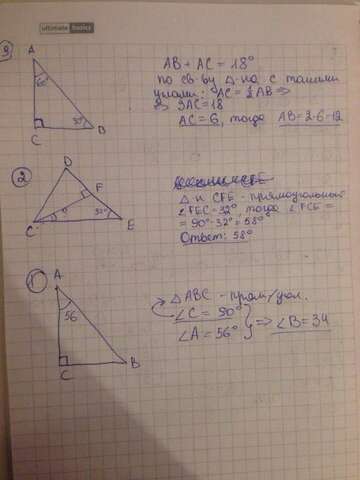 ultimate basics
3)
A
60°
30°
C
B
AB + AC = 18°
по св-ву Δ-ка с такими
углами: AC = ½ AB =>
=> 3AC = 18
AC = 6, тогда AB = 2·6=12
2
D
F
C
32°
E
Δ-к CFE - прямоугольный
∠FEC = 32°, тогда ∠FCE =
= 90° - 32° = 58°
Ответ: 58°
1)
A
56
C
B
Δ ABC - прям/угол.
∠C = 90°
∠A = 56°
=> ∠B = 34